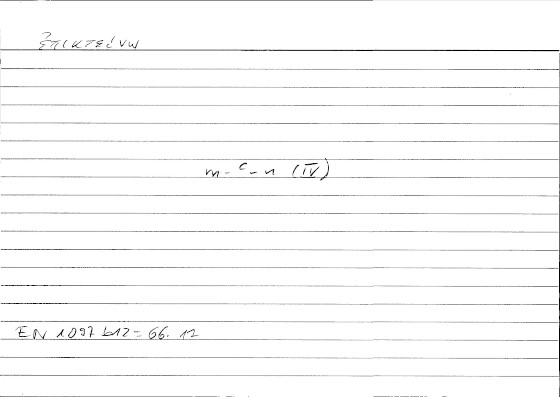 ἐπικτείνω
m-ʿ-n (IV)
EN 1097 b12 = 66. 12